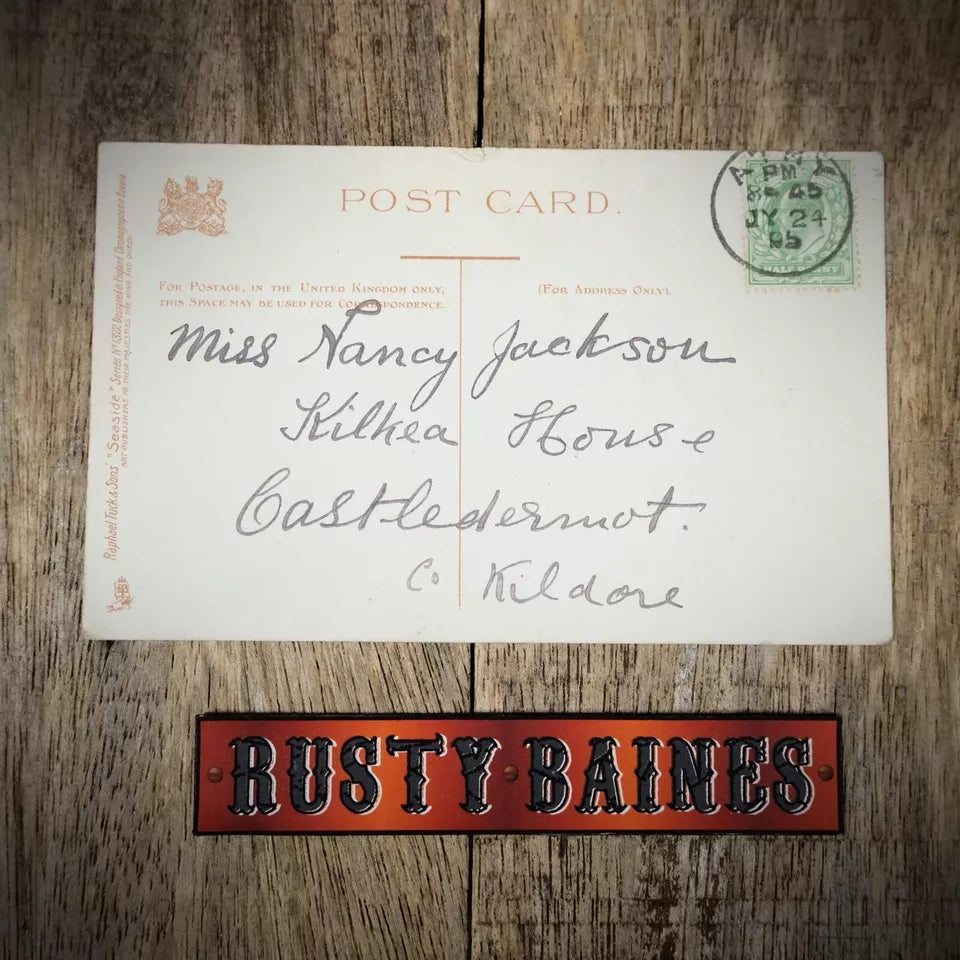 POST CARD.
FOR POSTAGE, IN THE UNITED KINGDOM ONLY,
THIS SPACE MAY BE USED FOR CORRESPONDENCE.
(FOR ADDRESS ONLY).
PM
8 45
JY 24
05
HALFPENNY
Miss Nancy Jackson
Kilkea House
Castledermot.
Co Kildare
Raphael Tuck & Sons' "Seaside" Series No 1302 Designed in England Chromographed in
ART PUBLISHERS TO THEIR MAJESTIES THE KING AND QUEEN
RUSTY BAINES